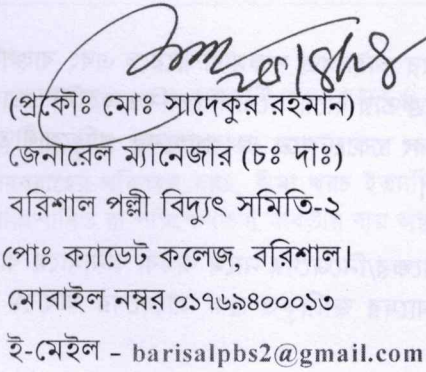 (প্রকৌঃ মোঃ সাদেকুর রহমান)
জেনারেল ম্যানেজার (চঃ দাঃ)
বরিশাল পল্লী বিদ্যুৎ সমিতি-২
পোঃ ক্যাডেট কলেজ, বরিশাল।
মোবাইল নম্বর ০১৭৬৯৪০০০১৩
ই-মেইল - barisalpbs2@gmail.com